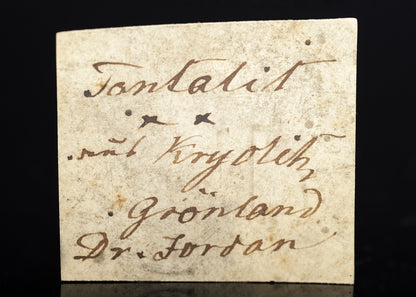 Tantalit
x x
aus Kryolith,
Grönland
Dr. Jordan